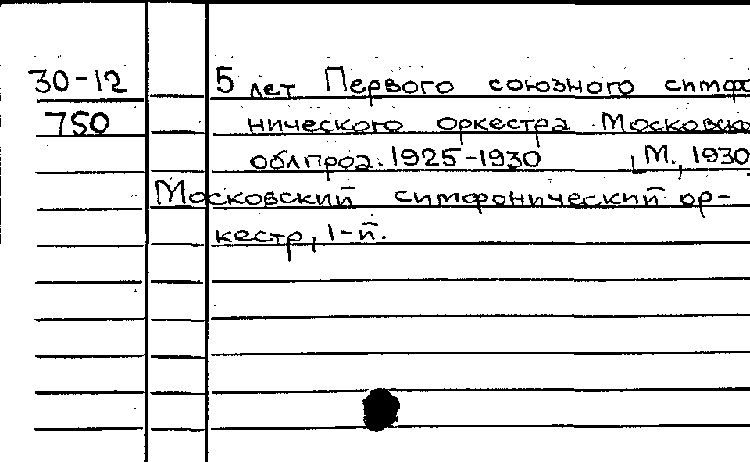 30-12 5 лет Первого союзного симфо
750 нического оркестра Московско
облпроз. 1925-1930 М., 1930
Московский симфонический ор-
кестр, 1-й.